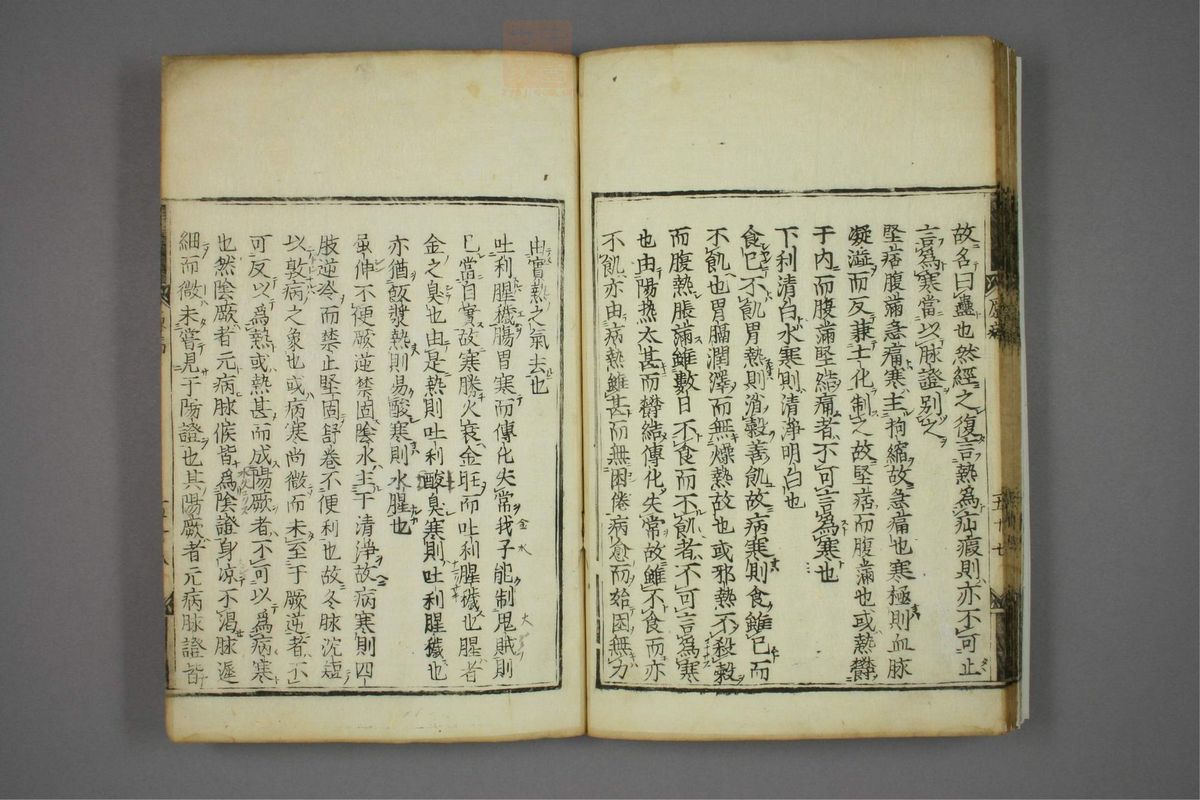 故名曰蠱也然經之復言熱爲疝瘕則亦不可止
言爲寒當以脉證別之
堅痞腹滿急痛寒主拘縮故急痛也寒極則血脉
凝濇而反兼土化制之故堅痞而腹滿也或熱欝
于内而腹滿堅結痛者不可言爲寒也
下利清白水寒則清淨明白也
食已不飢胃熱則消穀善飢故病寒則食雖已而
不飢也胃膈潤澤而無燥熱故也或邪熱不殺穀
而腹熱脹滿雖數日不食而不飢者不可言爲寒
也由陽热太甚而欝結傳化失常故雖不食而亦
不飢亦由病熱雖甚而無困倦病愈而始困無力
由實熱之氣去也
吐利腥穢腸胃寒而傳化失常我子能制鬼賊則
己當自實故寒勝火衰金旺而吐利腥穢也腥者
金之臭也由是熱則吐利酸臭寒則吐利腥穢也
亦猶飯漿熱則易酸寒則水腥也
屈伸不便厥逆禁固陰水主于清淨故病寒則四
肢逆冷而禁止堅固舒卷不便利也故冬脉沉短
以敦病之象也或病寒尚微而未至于厥逆者不
可反以爲熱或熱甚而成陽厥者不可以爲病寒
也然陰厥者元病脉候皆爲陰證身凉不渴脉遲
細而微未嘗見于陽證也其陽厥者元病脉證皆